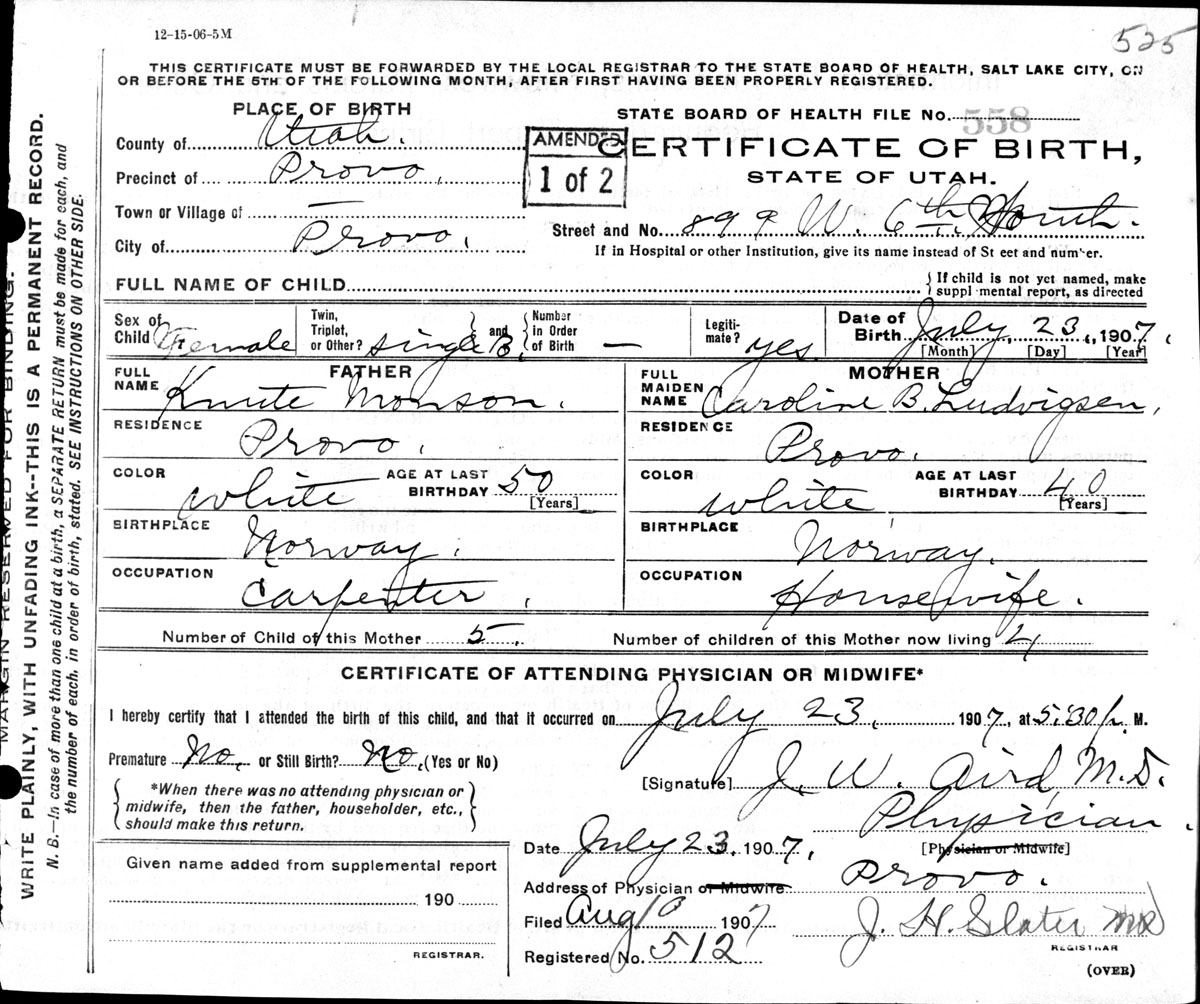 12-15-06-5M
525
THIS CERTIFICATE MUST BE FORWARDED BY THE LOCAL REGISTRAR TO THE STATE BOARD OF HEALTH, SALT LAKE CITY, ON
OR BEFORE THE 5TH OF THE FOLLOWING MONTH, AFTER FIRST HAVING BEEN PROPERLY REGISTERED.
PLACE OF BIRTH
County of Utah.
Precinct of Provo,
Town or Village of —
City of Provo,
AMENDED
1 of 2
STATE BOARD OF HEALTH FILE No. 558
CERTIFICATE OF BIRTH,
STATE OF UTAH.
Street and No. 899 W. 6th North.
If in Hospital or other Institution, give its name instead of St eet and number.
FULL NAME OF CHILD
{If child is not yet named, make
suppl mental report, as directed
Sex of Child Female
Twin, Triplet, or Other? single B. and Number in Order of Birth —
Legitimate? yes
Date of Birth July, 23, 1907,
[Month] [Day] [Year]
FATHER
FULL NAME Knute Monson.
RESIDENCE Provo.
COLOR white AGE AT LAST BIRTHDAY 50 [Years]
BIRTHPLACE Norway.
OCCUPATION Carpenter,
MOTHER
FULL MAIDEN NAME Caroline B. Ludvigsen,
RESIDENCE Provo.
COLOR white AGE AT LAST BIRTHDAY 40 [Years]
BIRTHPLACE Norway.
OCCUPATION Housewife.
Number of Child of this Mother 5. Number of children of this Mother now living 4
CERTIFICATE OF ATTENDING PHYSICIAN OR MIDWIFE*
I hereby certify that I attended the birth of this child, and that it occurred on July 23, 1907, at 5:30 p. M.
Premature No. or Still Birth? No. (Yes or No)
{*When there was no attending physician or
midwife, then the father, householder, etc.,
should make this return.}
[Signature] J. W. Aird, M.D.
Physician.
[Physician or Midwife]
Date July 23, 1907.
Address of Physician or Midwife Provo.
Filed Aug 10 1907 J. H. Slater MD
REGISTRAR
Registered No. 512
(OVER)
Given name added from supplemental report
190
REGISTRAR.
MARGIN RESERVED FOR BINDING.
WRITE PLAINLY, WITH UNFADING INK--THIS IS A PERMANENT RECORD.
N. B.—In case of more than one child at a birth, a SEPARATE RETURN must be made for each, and
the number of each, in order of birth, stated. SEE INSTRUCTIONS ON OTHER SIDE.